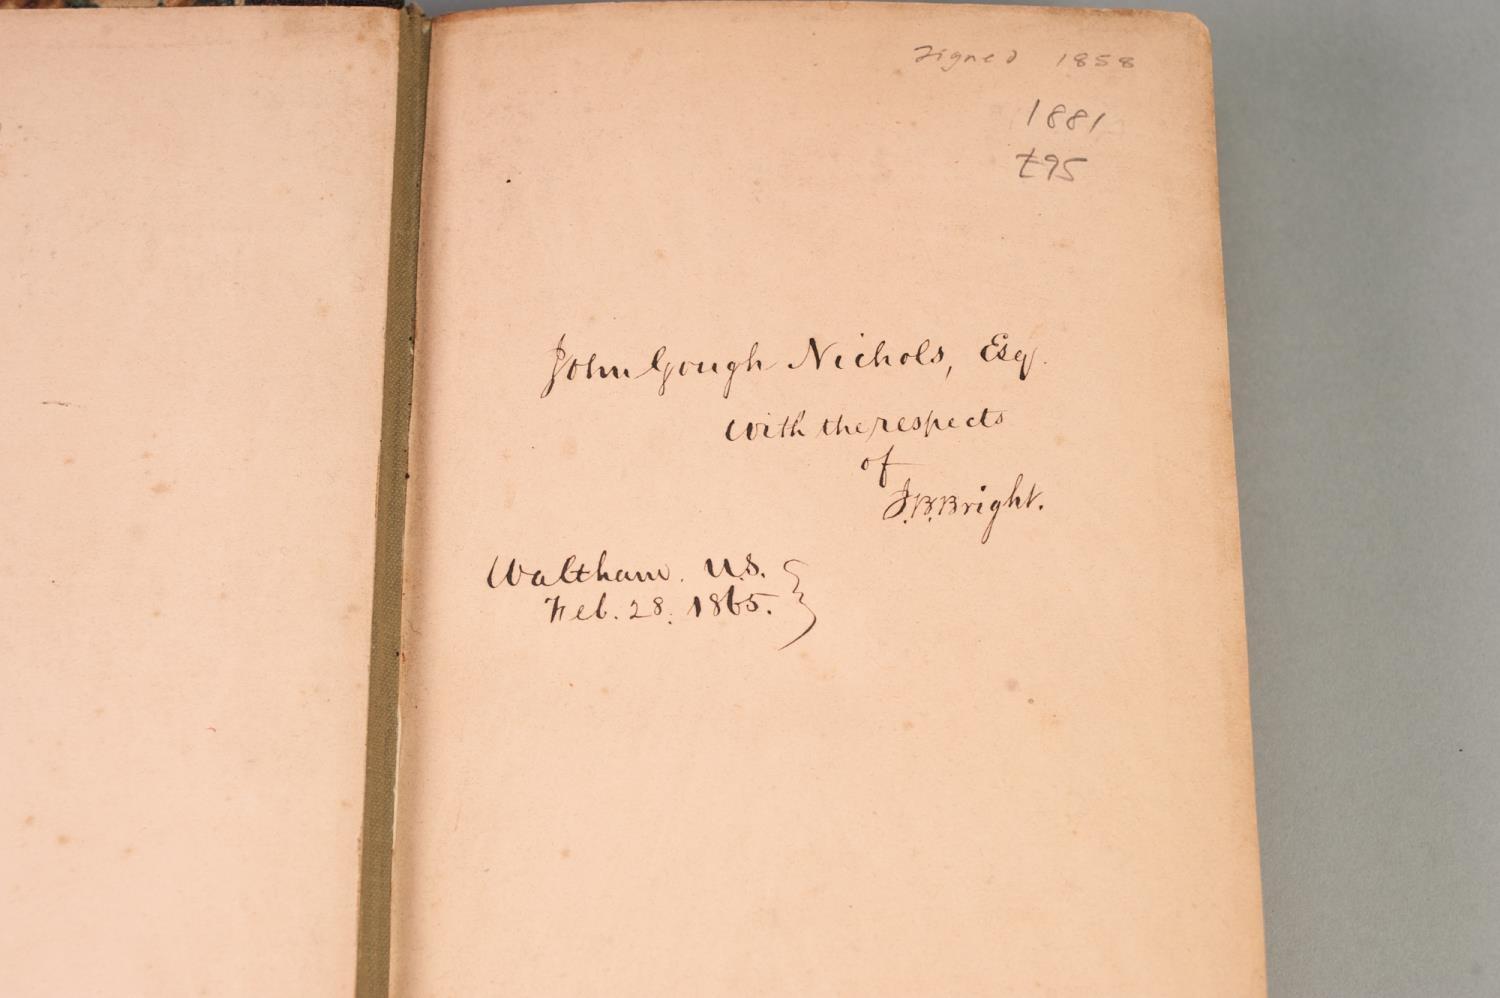 Signed 1858
1881
£95
John Gough Nichols, Esq.
with the respects
of
J.B.Bright.
Waltham. U.S.
Feb. 28. 1865.